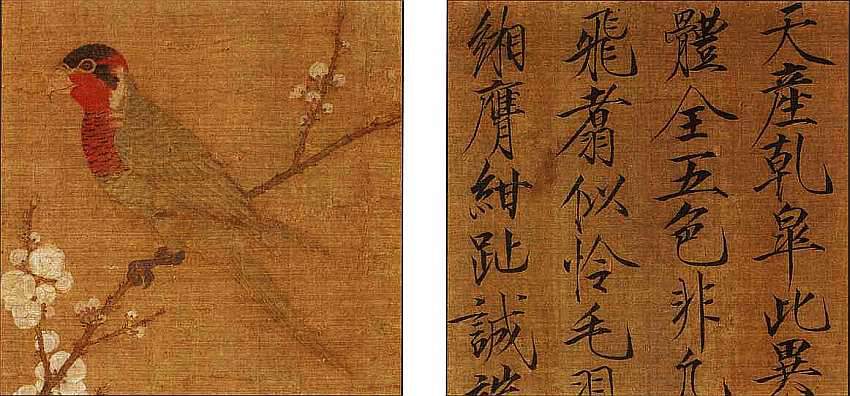 天產乾皋此異
體全五色非凡
飛翥似怜毛羽
緗膺紺趾誠端